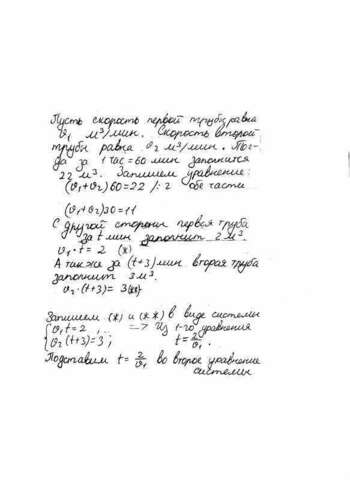 Пусть скорость первой трубы равна
v₁ м³/мин. Скорость второй
трубы равна v₂ м³/мин. Тог-
да за 1 час = 60 мин заполнится
22 м³. Запишем уравнение:
(v₁+v₂)60=22 /:2 обе части
(v₁+v₂)30=11
С другой стороны первая труба
за t мин заполнит 2 м³.
v₁·t = 2 (*)
А также за (t+3) мин вторая труба
заполнит 3 м³.
v₂·(t+3) = 3 (**)
Запишем (*) и (**) в виде системы
{v₁t=2, => Из 1-го уравнения
{v₂(t+3)=3; t=2/v₁.
Подставим t=2/v₁ во второе уравнение
системы